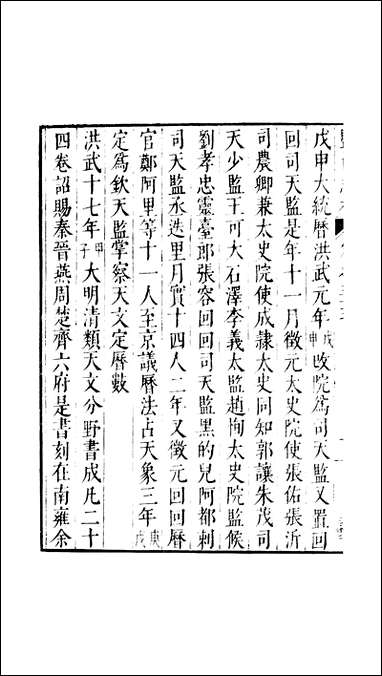 戊申大統曆洪武元年戊申改院爲司天監又置回
回司天監是年十一月徵元太史院使張佑張沂
司農卿兼太史院使成隸太史同知郭讓朱茂司
天少監王可大石澤李義太監趙恂太史院監候
劉孝忠靈臺郎張容回回司天監黑的兒阿都剌
司天監丞迭里月實十四人二年又徵元回回曆
官鄭阿里等十一人至京議曆法占天象三年庚戌
定爲欽天監掌察天文定曆數
洪武十七年甲子大明清類天文分野書成凡二十
四卷詔賜秦晉燕周楚齊六府是書刻在南雍余